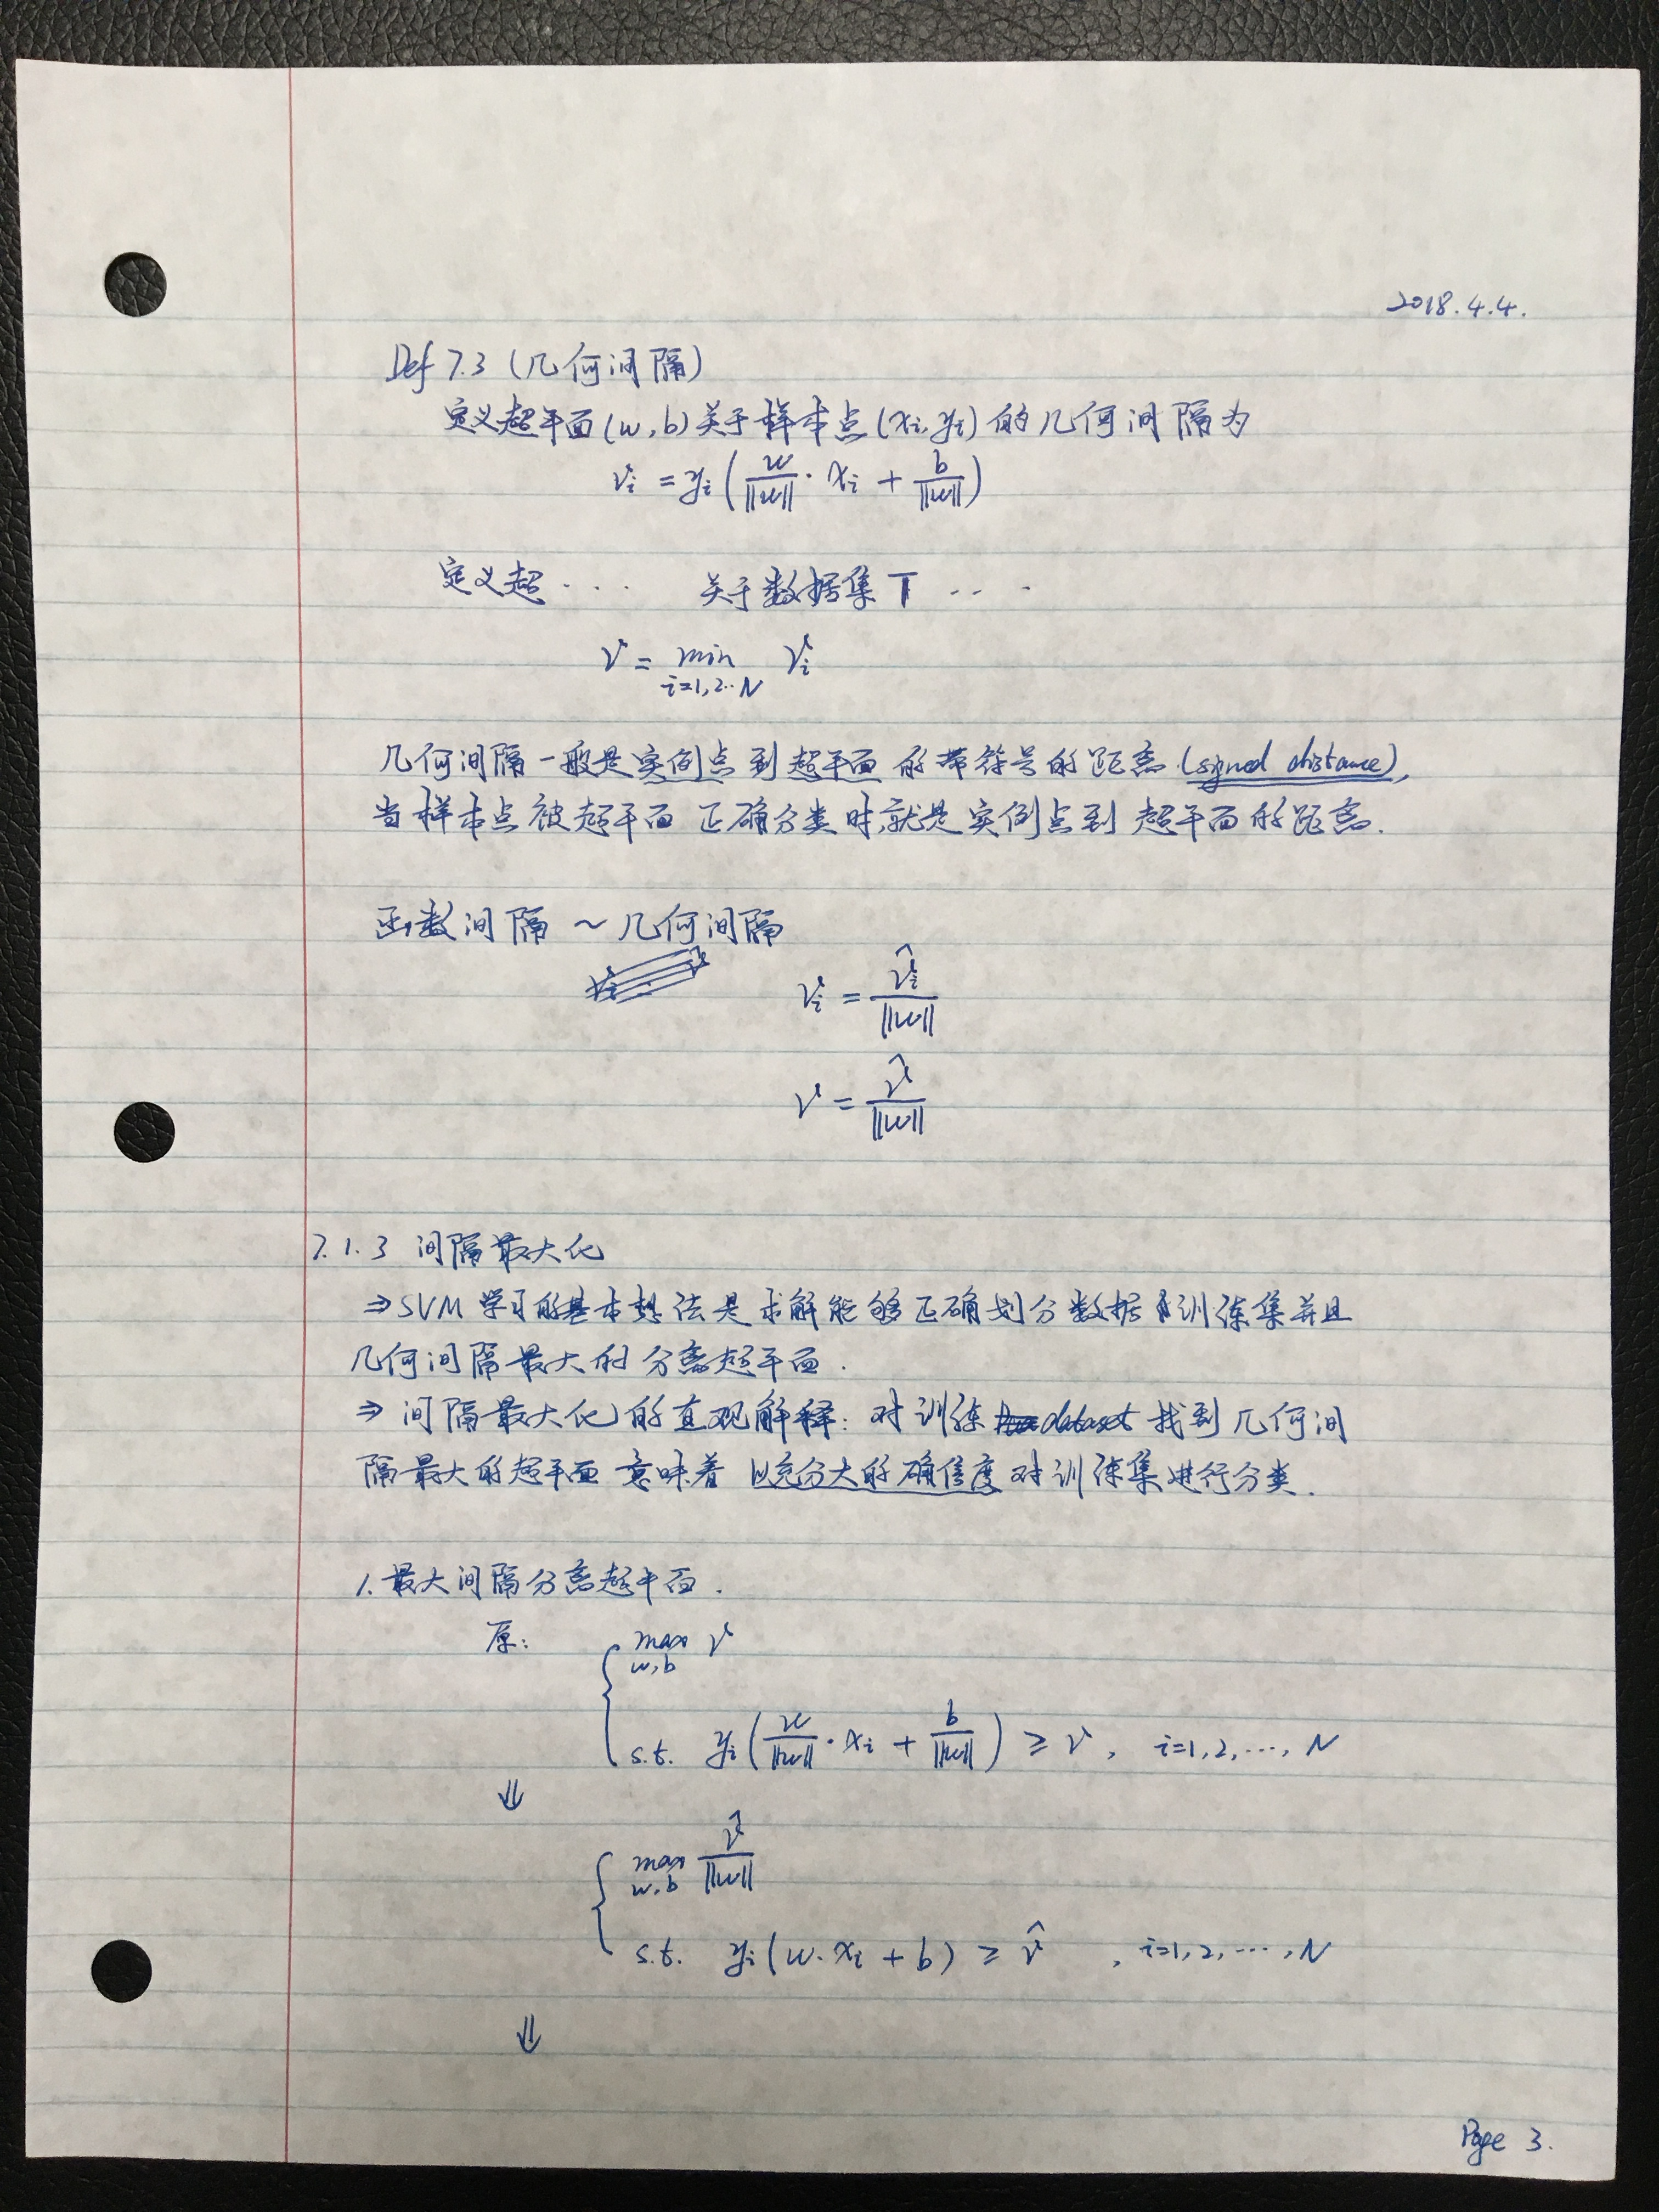 2018.4.4.
Def 7.3 (几何间隔)
定义超平面(w,b)关于样本点(xᵢ,yᵢ)的几何间隔为
γᵢ = yᵢ( w/||w|| · xᵢ + b/||w|| )
定义超 ... 关于数据集T ...
γ = min γᵢ
i=1,2..N
几何间隔一般是实例点到超平面的带符号的距离(signed distance),
当样本点被超平面正确分类时,就是实例点到超平面的距离.
函数间隔 ~ 几何间隔
γᵢ = γ̂ᵢ/||w||
γ = γ̂/||w||
7.1.3 间隔最大化
⇒ SVM学习的基本想法是求解能够正确划分数据训练集并且
几何间隔最大的分离超平面.
⇒ 间隔最大化的直观解释: 对训练dataset找到几何间
隔最大的超平面意味着以充分大的确信度对训练集进行分类.
1. 最大间隔分离超平面.
原: max γ
w,b
s.t. yᵢ( w/||w|| · xᵢ + b/||w|| ) ≥ γ, i=1,2,…,N
⇓
max γ̂/||w||
w,b
s.t. yᵢ(w·xᵢ + b) ≥ γ̂ , i=1,2,…,N
⇓
Page 3.